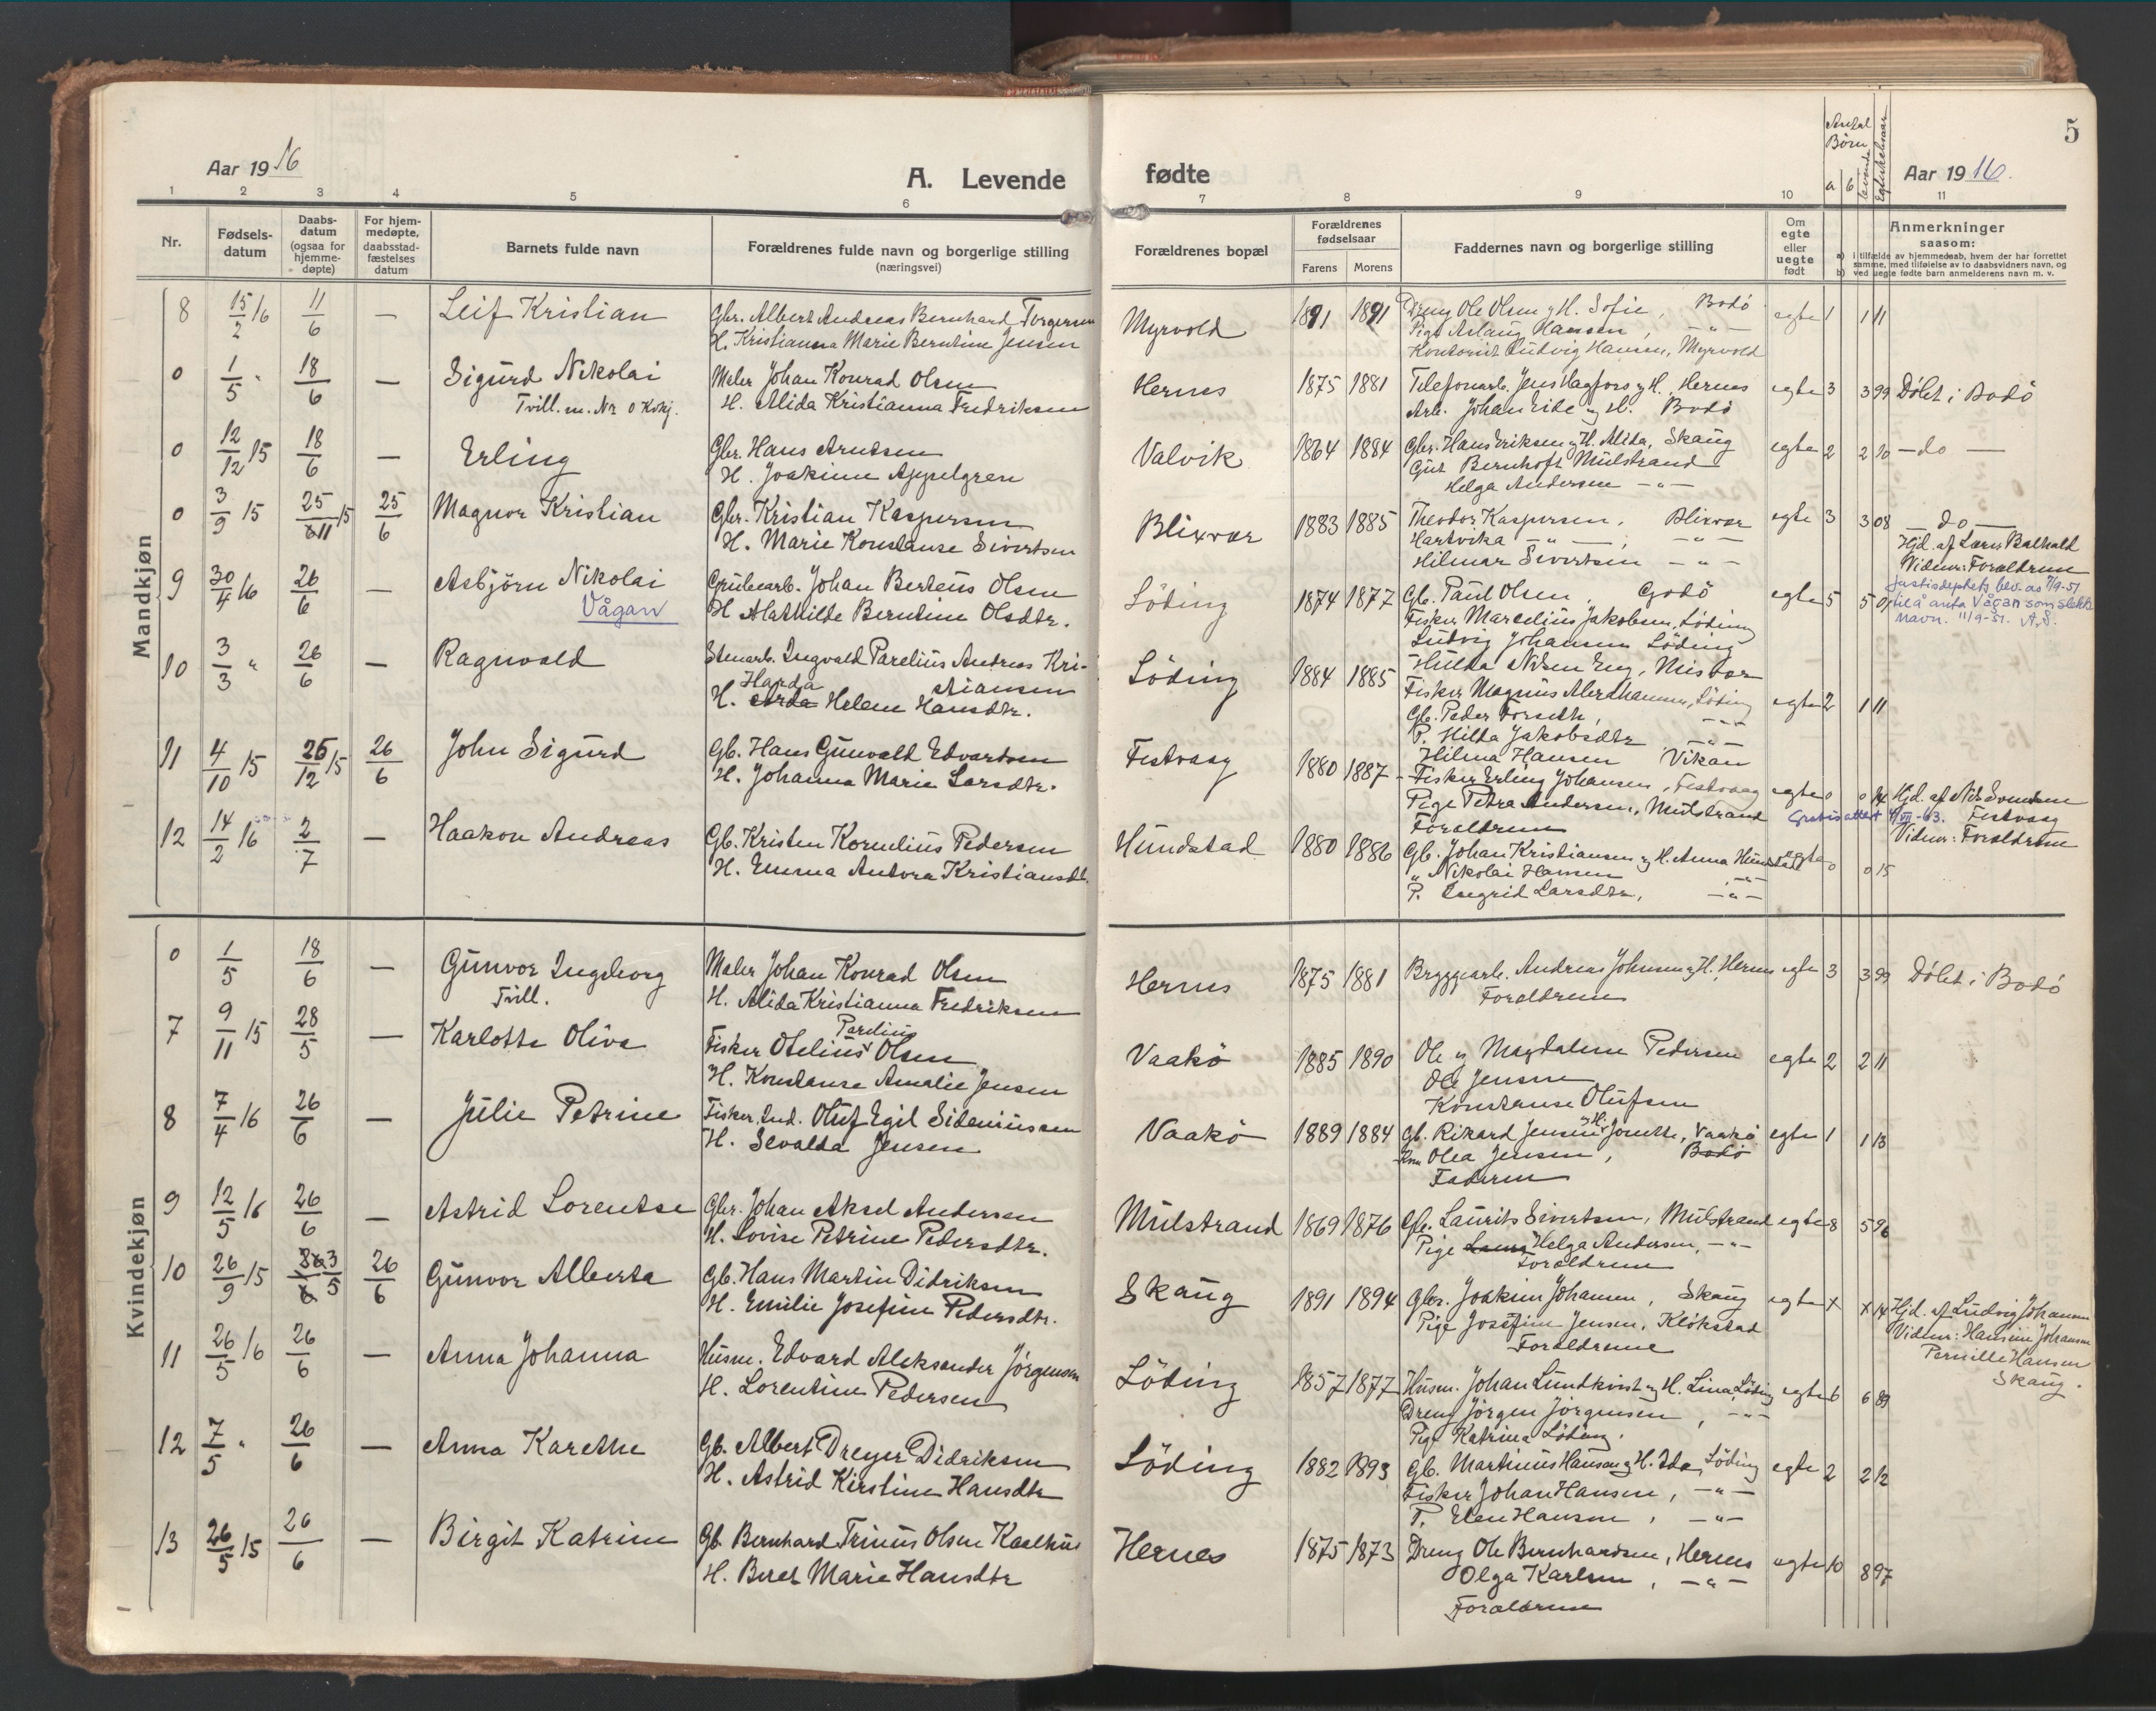 Aar 1916
A. Levende
fødte
Aar 1916.
5
Antal Børn
a b levende Egteskabsaar
1 2 3 4 5 6 7 8 9 10 11
Nr.
Fødsels-datum
Daabs-datum (ogsaa for hjemme-døpte)
For hjem-medøpte, daabsstad-fæstelses datum
Barnets fulde navn
Forældrenes fulde navn og borgerlige stilling (næringsvei)
Forældrenes bopæl
Forældrenes fødselsaar
Farens Morens
Faddernes navn og borgerlige stilling
Om egte eller uegte født
Anmerkninger saasom:
a) i tilfælde av hjemmedaab, hvem der har forrettet samme, med tilføielse av to daabsvidners navn, og
b) ved uegte fødte barn anmelderens navn m. v.
Mandkjøn
8 15/2 16 11/6 — Leif Kristian Gbr. Albert Andreas Bernhard Torgersen Myrvold 1891 1891 Dreng Ole Olsen og H. Sofie, Bodö egte 1 1 11
H. Kristianna Marie Berntine Jensen Pige Aslaug Hansen, — " —
Kontorist Ludvig Hansen, Myrvold
0 1/5 " 18/6 — Sigurd Nikolai Maler Johan Konrad Olsen Hernes 1875 1881 Telefonarb. Jens Hagfors og H. Hernes egte 3 3 99 Döbt i Bodö
Tvill. m. Nr 0 Kvkj. H. Alida Kristianna Fredriksen Arb. Johan Eide og H. Bodö
0 12/12 15 18/6 — Erling Gbr. Hans Arntsen Valvik 1864 1884 Gbr. Hans Eriksen og H. Alida, Skaug egte 2 2 10 — do —
H. Joakime Appelgren Gut Bernhoft Mulstrand
Helga Andersen — " —
0 3/9 15 25/11 15 25/6 Magnor Kristian Gbr. Kristian Kaspersen Blixvær 1883 1885 Theodor Kaspersen, Blixvær egte 3 3 08 — do —
H. Marie Konstanse Sivertsen Hartvika — " —, — " — Hjd. af Lærer Balhald
Hilmar Sivertsen — " — Vidner: Forældrene
9 30/4 16 26/6 — Asbjörn Nikolai Grubearb. Johan Berteus Olsen Löding 1874 1877 Gb. Paul Olsen, Godö egte 5 5 Justisdeptets bev. av 7/9-51
Vågan H. Mathilde Berntine Olsdtr. Fisker Marcelius Jakobsen, Löding til å anta Vågan som slekts
Ludvig Johansen Löding navn. 11/9-51. A.S.
10 3/3 " 26/6 — Ragnvald Stenarb. Ingvald Parelius Andreas Kri- Löding 1884 1885 Hulda Nilsen Eng, Misvær
stiansen Fisker Magnus Abrahamsen, Löding egte 2 1 11
H. Harda Helene Hansdtr. Gb. Peder Forseth, — " —
P. Hilda Jakobsdtr — " —
11 4/10 15 26/12 15 26/6 John Sigurd Gb. Hans Gunvald Edvardsen Festvaag 1880 1887 Hilma Hansen Vikan
H. Johanna Marie Larsdtr. Fisker Erling Johansen, Festvaag egte 0 0 14 Hjd. af Nils Svendsen
Pige Petra Andersen, Mulstrand Gratis attest 4/VII-63. Festvaag
Forældrene Vidner: Forældrene
12 14/2 16 2/7 — Haakon Andreas Gb. Kristen Kornelius Pedersen Hundstad 1880 1886 Gb. Johan Kristiansen og H. Anna Hundstad egte 0 0 15
H. Emma Antora Kristiansdt. " Nikolai Hansen — " —
P. Ingrid Larsdtr, — " —
Kvindekjøn
0 1/5 18/6 — Gunvor Ingeborg Maler Johan Konrad Olsen Hernes 1875 1881 Bryggearb. Andreas Johnsen og H. Hernes egte 3 3 99 Döbt i Bodö
Tvill. H. Alida Kristianna Fredriksen Forældrene
7 9/11 15 28/5 — Karlotte Oliva Fisker Otelius Parelius Olsen Vaakö 1885 1890 Ole og Magdalene Pedersen egte 2 2 11
H. Konstanse Amalie Jensen Ole Jensen
Konstanse Olufsen
8 7/4 16 26/6 — Julie Petrine Fisker, Ind. Oluf Egil Sideniussen Vaakö 1889 1884 Gb. Rikard Jensen og H. Jonette, Vaakö egte 1 1 13
H. Sevalda Jensen Kone Olea Jensen, Bodö
Faderen
9 12/5 16 26/6 — Astrid Lorentse Gbr. Johan Aksel Andersen Mulstrand 1869 1876 Gb. Laurits Sivertsen, Mulstrand egte 8 5 96
H. Lovise Petrine Pedersdtr. Pige Helga Andersen, — " —
Forældrene
10 26/9 15 3/5 26/6 Gunvor Alberta Gb. Hans Martin Didriksen Skaug 1891 1894 Gbr. Joakim Johansen, Skaug egte x x 14 Hjd. af Ludvig Johansen
H. Emilie Josefine Pedersdtr. Pige Josefine Jensen, Klökstad Vidner: Hansine Johansen
Forældrene Pernille Hansen
Skaug.
11 26/5 16 26/6 — Anna Johanna Husm. Edvard Aleksander Jörgensen Löding 1857 1877 Husm. Johan Lundkvist og H. Lina, Löding egte 6 6 89
H. Lorentine Pedersen Dreng Jörgen Jörgensen, — " —
Pige Katrina Löding.
12 7/5 " 26/6 — Anna Karethe Gb. Albert Dreyer Didriksen Löding 1882 1893 Gb. Martinus Hansen og H. Ida, Löding egte 2 2 12
H. Astrid Kirstine Hansdtr Fisker Johan Hansen, — " —
P. Elen Hansen, — " —
13 26/5 15 26/6 — Birgit Katrine Gb. Bernhard Trinus Olsen Kaalhus Hernes 1875 1873 Dreng Ole Bernhardsen, Hernes egte 10 8 97
H. Beret Marie Hansdtr Olga Karlsen, — " —
Forældrene